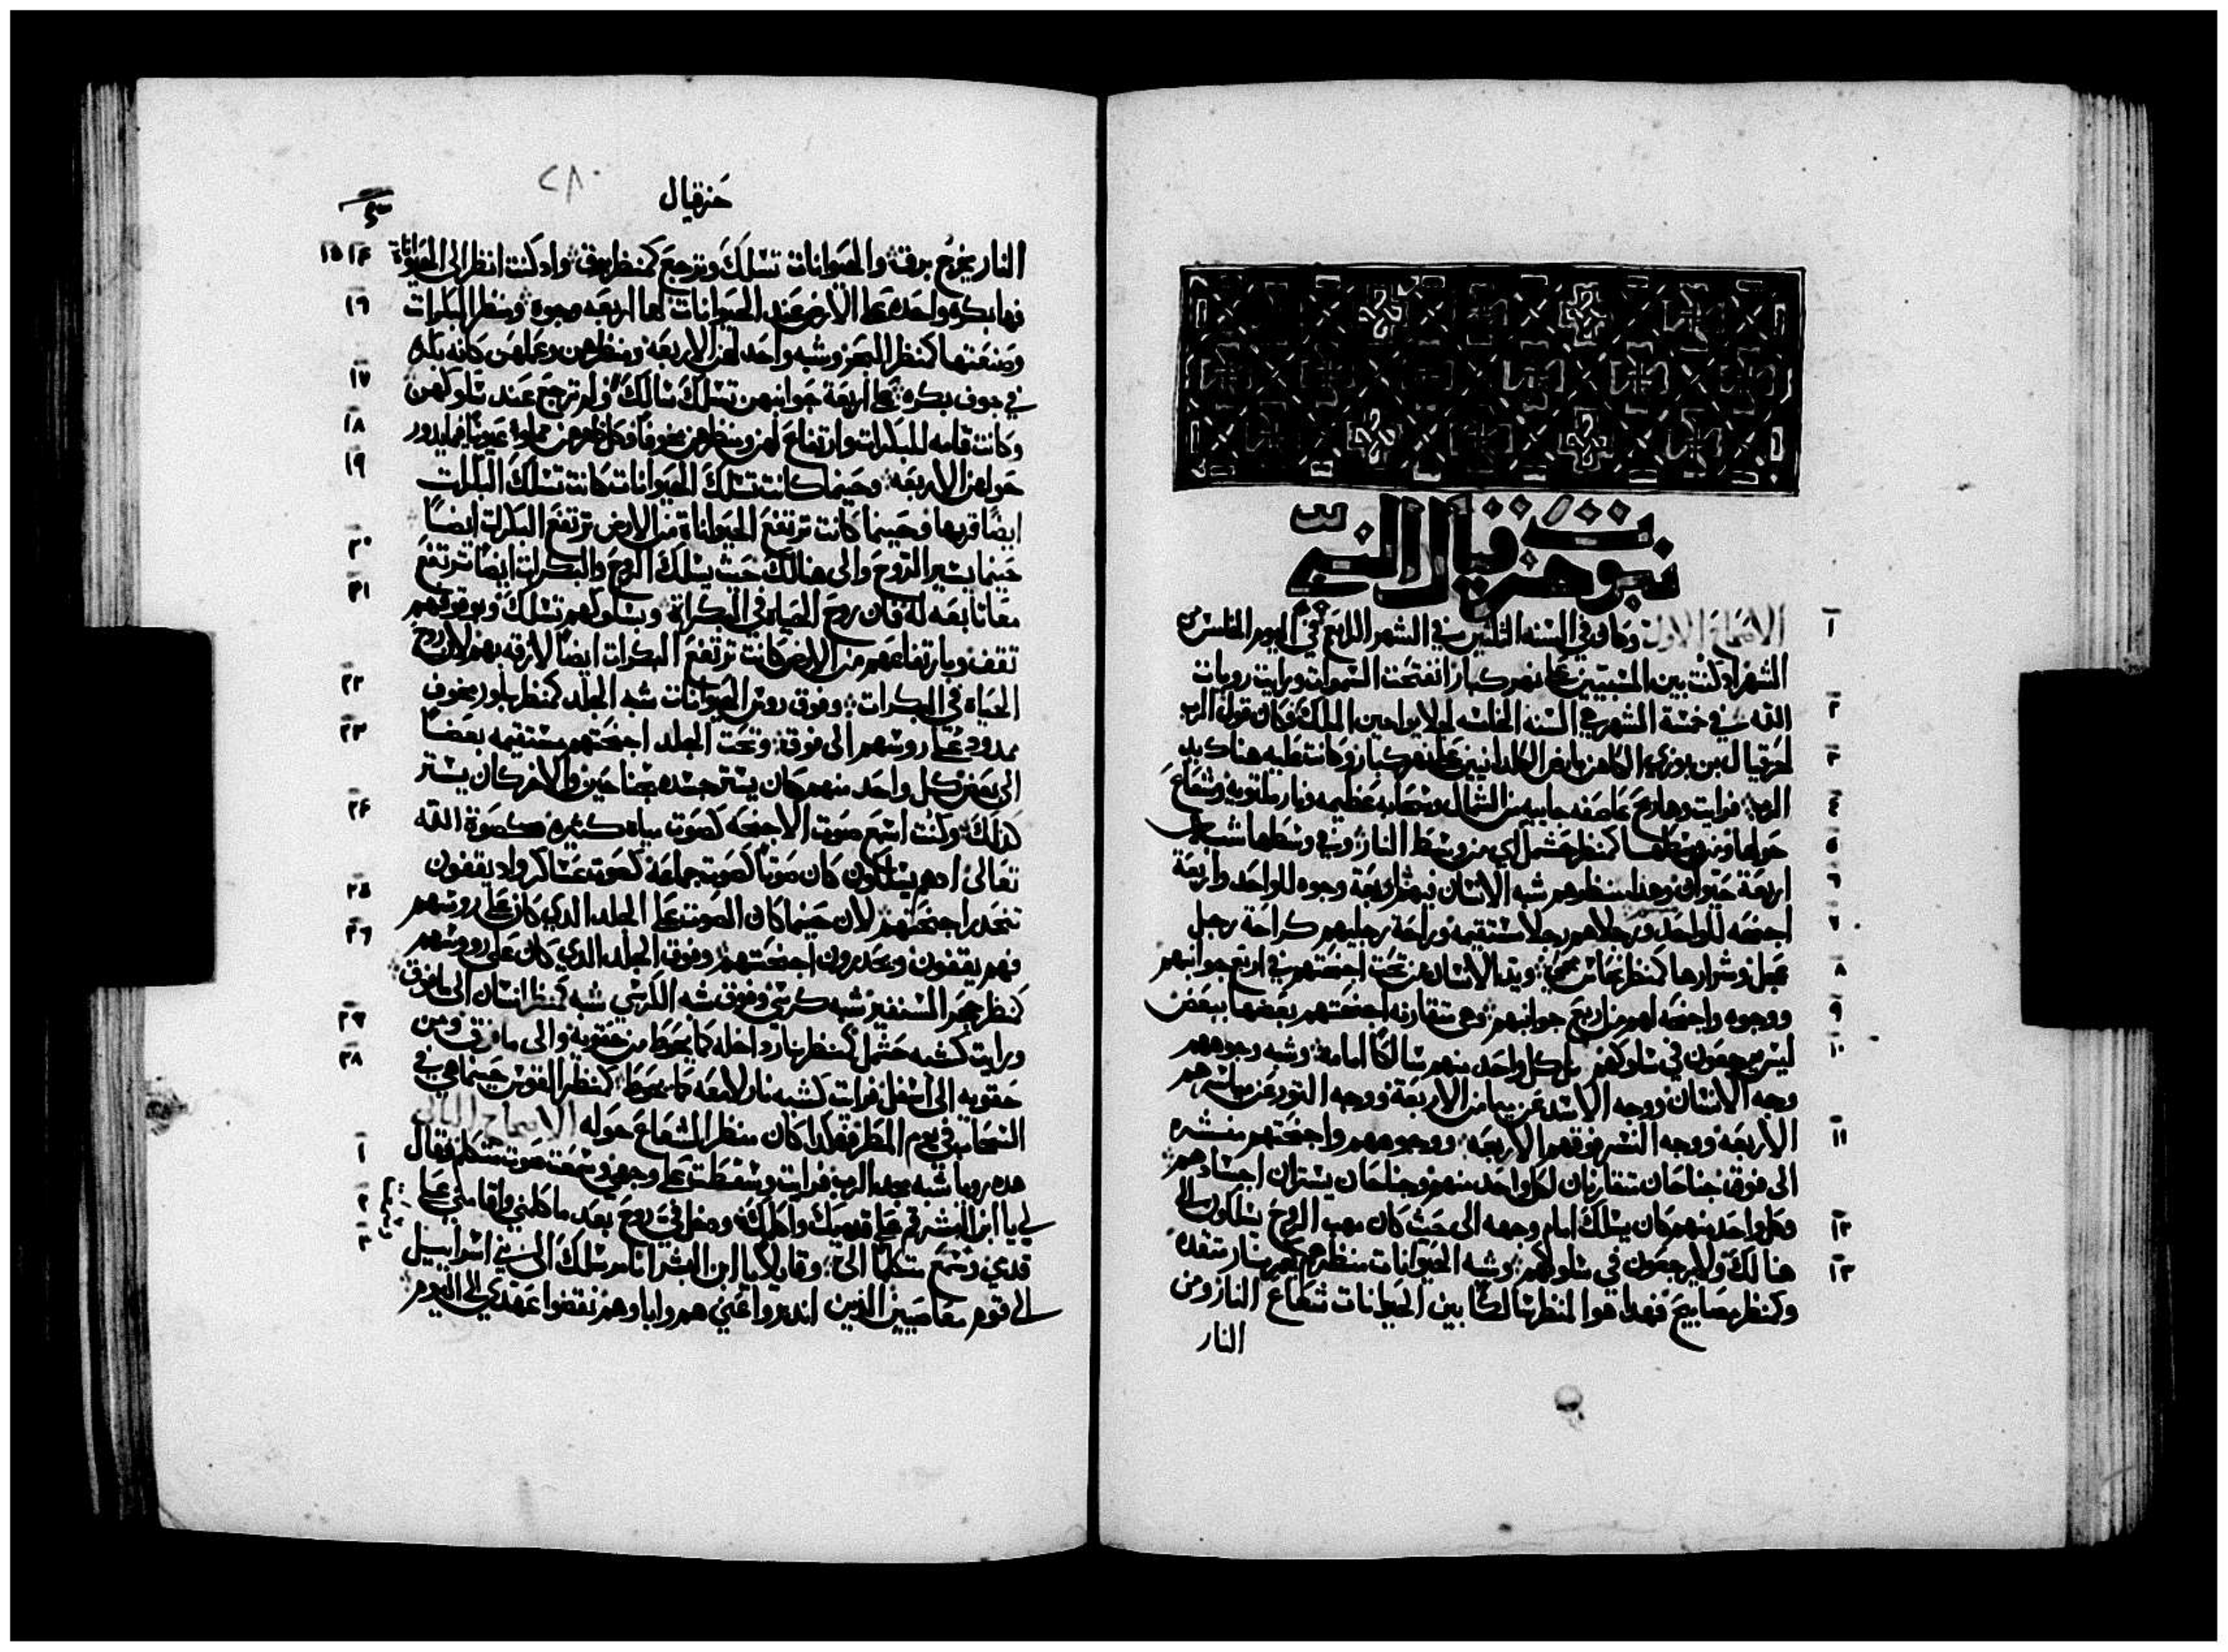 نبوة حزقيال النبي
الاصحاح الاول وكان في السنه الثلثين في الشهر الرابع في اليوم الخامس من
١
الشهر اد كنت بين المسبيين علي نهر كبار انفتحت السموات ورايت رويات
الله في خمسة الشهر هي السنه الخامسه لجلا يواخين الملك وكان قول الرب
٢
لحزقيال بن بوزي الكاهن بارض الكلدانيين علي نهر كبار وكانت عليه هناك يد
٣
الرب فرايت وهادا ريح عاصفه جاييه من الشمال وسحابه عظيمه ونار ملتويه وشعاع
٤
حولها ومن وسطها كمنظر حشمل اي من وسط النار وفي وسطها شبه
٥
اربعة حيوان وهدا منظرهم شبه الانسان فيهم اربعة وجوه للواحد واربعة
٦
اجنحه للواحد ورجلاهم رجلا مستقيمه وراحة رجليهم كراحة رجل
٧
عجل وشرارها كمنظر نحاس محمي ويد الانسان من تحت اجنحتهم في اربع جوانبهم
٨
ووجوه واجنحه لهم من اربع جوانبهم وهي متقارنه اجنحتهم بعضها ببعض
٩
ليس يرجعون في سلوكهم بل كل واحد منهم سالكا امامه وشبه وجوههم
١٠
وجه الانسان ووجه الاسد عن ميامن الاربعة ووجه التور عن مياسرهم
الاربعه ووجه النسر فوقهم الاربعه ووجوههم واجنحتهم منتشره
١١
الى فوق جناحان متقارنان لكل واحد منهم وجناحان يستران اجسادهم
وكل واحد منهم كان يسلك امام وجهه الى حيث كان مهب الروح يسلكون الي
١٢
هنالك ولا يرجعون في سلوكهم وشبه الحيوانات منظرهم كجمر نار متقده
١٣
وكمنظر مصابيح فهدا هو المنظر سالكا بين الحيوانات شعاع النار ومن
النار
٢٨٠
حزقيال
النار يخرج برق والحيوانات تسلك وترجع كمنظر برق واد كنت انظر الى الحيوانات
١٤ ١٥
فها بكره واحده علي الارض عند الحيوانات لها اربعه وجوه ومنظر البكرات
١٦
وصنعتها كمنظر البحر وشبه واحد لهن الاربعه ومنظرهن وعملهن كانه بكره
في جوف بكره علي اربعة جوانبهن تسلك سالكه ولم ترجع عند سلوكهن
١٧
وكانت قامه للبكرات وارتفاع لهن ومنظرهن مخوفا وكل ظهرهن مملوه عيونا فما يدور
١٨
حولهن الاربعه وحينما كانت تسلك الحيوانات كانت تسلك البكرات
١٩
ايضا قربها وحينما كانت ترتفع الحيوانات من الارض ترتفع البكرات ايضا
حينما يسير الروح والى هنالك حيث يسلك الروح والبكرات ايضا ترتفع
٢٠
معا تابعه له فان روح الحياه في البكرات وبسلوكهم تسلك وبوقوفهم
٢١
تقف وبارتفاعهم من الارض كانت ترتفع البكرات ايضا لازقه بهم لان روح
الحياه في البكرات وفوق روس الحيوانات شبه الجلد كمنظر بلور مخوف
٢٢
ممدود علي روسهم الى فوق وتحت الجلد اجنحتهم مستقيمه بعضا
٢٣
الى بعض كل واحد منهم كان يستر جسده بجناحين والاخر كان يستر
كذلك وكنت اسمع صوت الاجنحه كصوت مياه كثيره كصوة الله
٢٤
تعالى اد هم يسلكون كان صوتا كصوت جماعه كصوت عساكر واد يقفون
تنحدر اجنحتهم لان حينما كان الصوت علي الجلد الدي كان علي روسهم
٢٥
فهم يقفون ويحدرون اجنحتهم وفوق الجلد الدي كان على رووسهم
٢٦
كمنظر حجر السنفير شبه كرسي وفوق شبه الكرسي شبه كمنظر انسان الى ما فوق
ورايت كشبه حشمل كمنظر نار داخله كما يحوط من حقويه والى ما فوق ومن
٢٧
حقويه الى اسفل فرايت كشبه نار لامعه كما يحوط كمنظر القوس حينما هي في
٢٨
السحاب في يوم المطر فهكدا كان منظر الشعاع حوله الاصحاح الثاني
هده رويا شبه مجد الرب فرايت وسقطت علي وجهي وسمعت صوت متكلم فقال
١
لي يا ابن البشر قم علي قدميك واكلمك ودخل في روح بعد ما كلمني واقامني علي
٢
قدمي وسمع متكلما الي وقايلا يا ابن البشر انا مرسلك الى بني اسراييل
٣
الي قوم معاصيين الذين اندروا عني هم واباوهم نقضوا عهدي الي اليوم